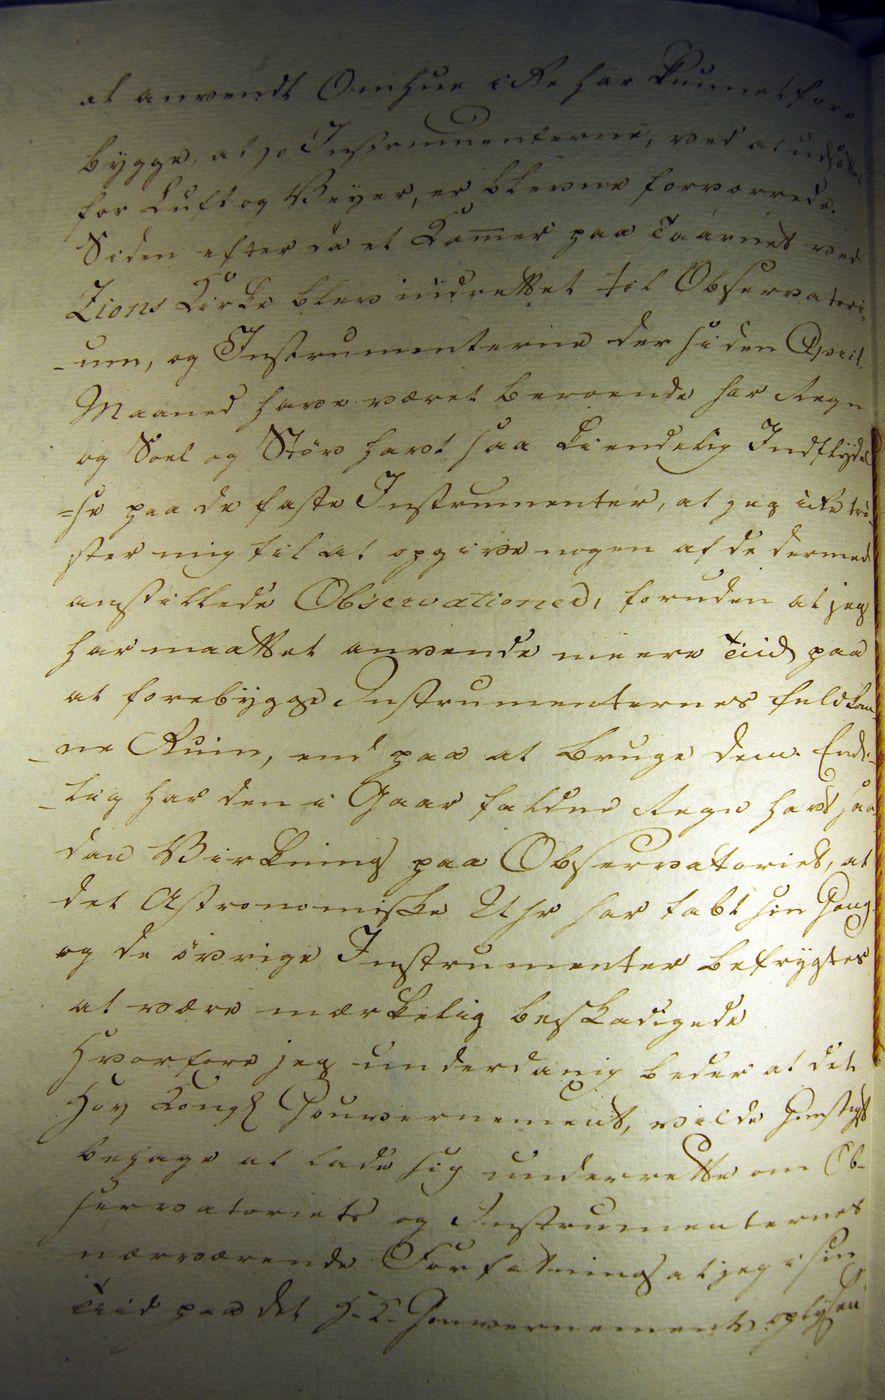 al anvendt Omhue ikke har kunnet fore
bygge, at jo Instrumenterne, ved at udsættes
for Luft og Veyer, er blevne forvorrede.
Siden efter da et Kamer paa Taarnet ved
Zions Kirke blev indrettet til Observatori-
-um, og Instrumenterne der siden April
Maaned have været beroende har Regn
og Soel og Stöv havt saa kiendelig Indflydel
=se paa de faste Instrumenter, at jeg ikke trö-
ster mig til at opgive nogen af de dermed
anstillede Observationer, foruden at jeg
har maattet anvende meere Tiid paa
at forebygge Instrumenternes fuldkom-
-ne Ruin, end paa at bruge dem. Ende-
-lig har den i Gaar faldne Regn havt saa
dan Virkning paa Observatoriet, at
det Astronomiske Uhr har tabt sin Gang
og de övrige Instrumenter befrygtes
at være mærkelig beskadigede
Hvorfore jeg underdanig beder at det
Höy Kongl Gouvernement, vilde gunstigst
behage at lade sig underrette om Ob-
servatoriets og Instrumenternes
nærværende Forfatning at jeg i sin
Tiid paa det H. K. Gouvernements oplysen